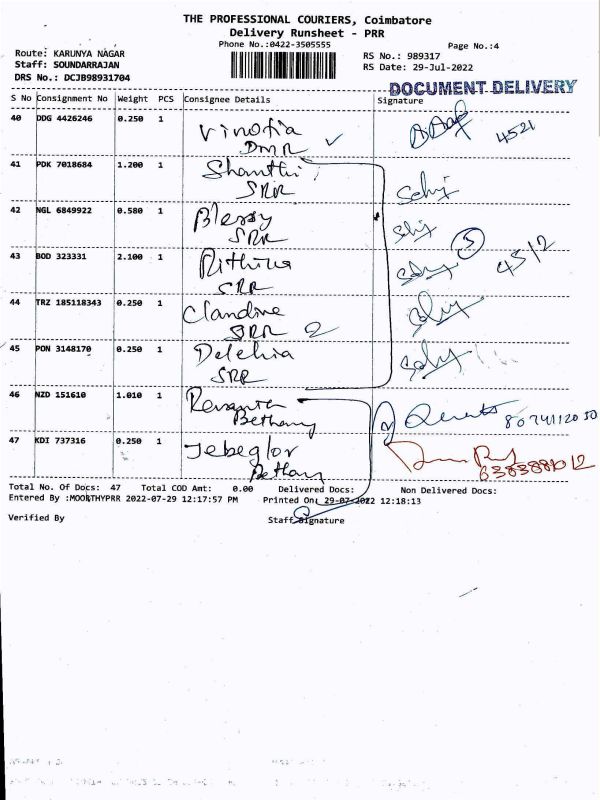 THE PROFESSIONAL COURIERS, Coimbatore
Delivery Runsheet - PRR
Phone No.:0422-3505555
Page No.:4
Route: KARUNYA NAGAR
RS No.: 989317
Staff: SOUNDARRAJAN
RS Date: 29-Jul-2022
DRS No.: DCJB98931704
DOCUMENT DELIVERY
S No Consignment No Weight PCS Consignee Details Signature
40 DDG 4426246 0.250 1 Vinotia
DMR 4521
41 PDK 7018684 1.200 1 Shanthi
SRR
42 NGL 6849922 0.580 1 Blessy
SRR 5
43 BOD 323331 2.100 1 Rithika 4512
SRR
44 TRZ 185118343 0.250 1 Clandine
SRR 2
45 PON 3148170 0.250 1
SRR
46 NZD 151610 1.010 1
Bethany 8074112050
47 KDI 737316 0.250 1 Jebeglor
Bethany
Total No. Of Docs: 47 Total COD Amt: 0.00 Delivered Docs: Non Delivered Docs:
Entered By :MOORTHYPRR 2022-07-29 12:17:57 PM Printed On: 29-07-2022 12:18:13
Verified By Staff Signature